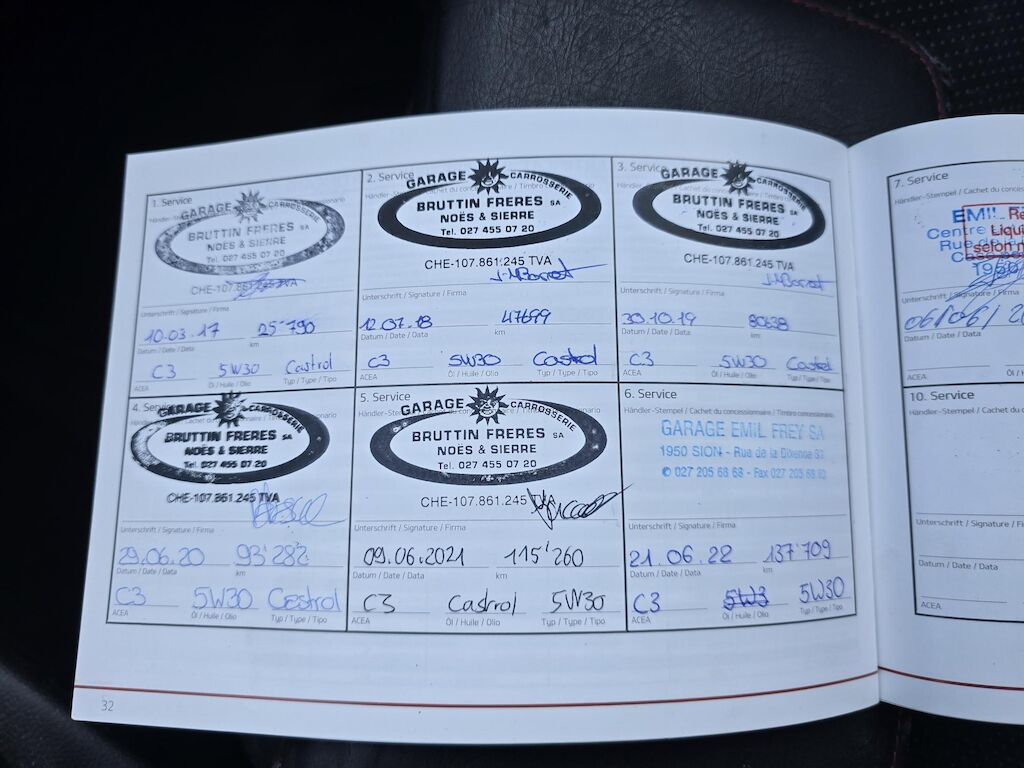 1. Service
GARAGE CARROSSERIE
BRUTTIN FRERES SA
NOËS & SIERRE
Tel. 027 455 07 20
CHE-107.861.245 TVA
Unterschrift / Signature / Firma
10.03.17 25'790
Datum / Date / Data km
C3 5W30 Castrol
ACEA Öl / Huile / Olio Typ / Type / Tipo
2. Service
GARAGE CARROSSERIE
BRUTTIN FRERES SA
NOËS & SIERRE
Tel. 027 455 07 20
CHE-107.861.245 TVA
Unterschrift / Signature / Firma
12.07.18 47699
Datum / Date / Data km
C3 5W30 Castrol
ACEA Öl / Huile / Olio Typ / Type / Tipo
3. Service
GARAGE CARROSSERIE
BRUTTIN FRERES SA
NOËS & SIERRE
Tel. 027 455 07 20
CHE-107.861.245 TVA
Unterschrift / Signature / Firma
30.10.19 80638
Datum / Date / Data km
C3 5W30 Castrol
ACEA Öl / Huile / Olio Typ / Type / Tipo
4. Service
GARAGE CARROSSERIE
BRUTTIN FRERES SA
NOËS & SIERRE
Tel. 027 455 07 20
CHE-107.861.245 TVA
Unterschrift / Signature / Firma
29.06.20 93'282
Datum / Date / Data km
C3 5W30 Castrol
ACEA Öl / Huile / Olio Typ / Type / Tipo
5. Service
GARAGE CARROSSERIE
BRUTTIN FRERES SA
NOËS & SIERRE
Tel. 027 455 07 20
CHE-107.861.245 TVA
Unterschrift / Signature / Firma
09.06.2021 115'260
Datum / Date / Data km
C3 Castrol 5W30
ACEA Öl / Huile / Olio Typ / Type / Tipo
6. Service
Händler-Stempel / Cachet du concessionnaire / Timbro concessionario
GARAGE EMIL FREY SA
1950 SION - Rue de la Dixence 83
© 027 205 68 68 - Fax 027 205 68
Unterschrift / Signature / Firma
21.06.22 137'709
Datum / Date / Data km
C3 5W3 5W30
ACEA Öl / Huile / Olio Typ / Type / Tipo
32
7. Service
Händler-Stempel / Cachet du
EMIL
Centre
Rue
selon
Unterschrift / Signature / Firma
06/06/
Datum / Date / Data
C3
ACEA
10. Service
Händler-Stempel / Cachet du
Unterschrift / Signature / Firma
Datum / Date / Data
ACEA